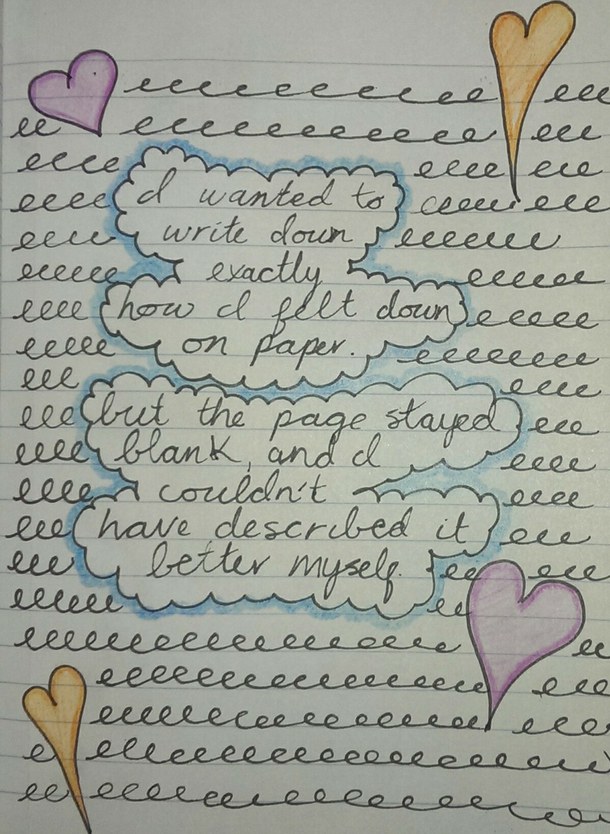 I wanted to
write down
exactly
how I felt down
on paper.
but the page stayed
blank, and I
couldn't
have described it
better myself.